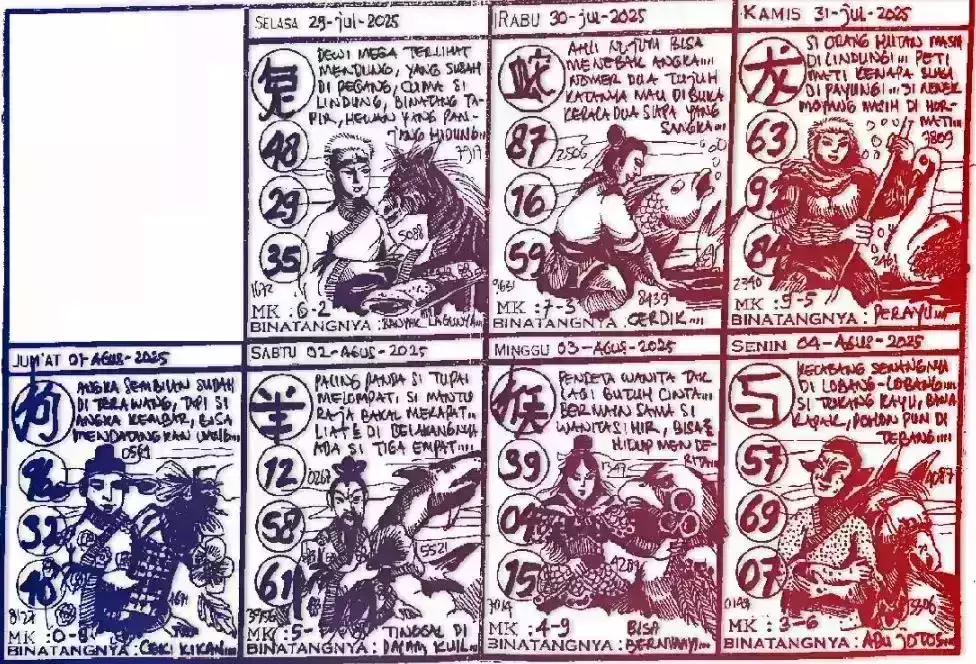 SELASA 29-jul-2025
DEWI MEGA TERLIHAT
MENDUNG, YANG SUDAH
DI PEGANG, CUMA SI
LINDUNG, BINATANG TA-
PIR, HEWAN YANG PAN-
JANG HIDUNG...
兔
48
29
35
5088
1672
MK : 6-2
BINATANGNYA : BANYAK LAGUNYA...
RABU 30-jul-2025
AHLI NUJUM BISA
MENEBAK ANGKA....
NOMER DUA TUJUH
KATANYA MAU DIBUKA
KEPALA DUA SIAPA YANG
SANGKA...
蛇
87
2506
16
59
9631
8439
MK : 7-3
BINATANGNYA : CERDIK....
KAMIS 31-jul-2025
SI ORANG HUTAN MASIH
DI LINDUNGI... PETI
MATI KENAPA SUKA
DI PAYUNGI... SI NENEK
MOYANG MASIH DI HOR-
MATI...
7809
龙
63
92
84
2461
2340
MK : 9-5
BINATANGNYA : PERAYU...
JUM'AT 01-AGUS-2025
ANGKA SEMBILAN SUDAH
DI TERAWANG, TAPI SI
ANGKA KEMBAR, BISA
MENDATANGKAN
狗
0561
32
MK : 0-8
BINATANGNYA : CEKI KIKAN...
SABTU 02-AGUS-2025
PALING PANDAI SI TUPAI
MELOMPAT, SI MANTU
RAJA BAKAL MERAPAT...
LIAT DI BELAKANGNYA
ADA SI TIGA EMPAT....
羊
12
0267
58
5521
61
MK : 5-
BINATANGNYA : TINGGAL DI
DALAM KUIL...
MINGGU 03-AGUS-2025
PENDETA WANITA TAK
LAGI BUTUH CINTA...
BERMAIN SAMA SI
WANITA SIHIR, BISA
HIDUP MENDE-
RITA...
猴
39
1347
04
15
7014
MK : 4-9
BINATANGNYA : BISA
BERNYANYI...
SENIN 04-AGUS-2025
KECABANG SENANGNYA
DI LOBANG-LOBANG...
SI TUKANG KAYU, BAWA
KAPAK, POHON PUN DI
TEBANG....
57
69
07
MK : 3-6
BINATANGNYA : ADU JOTOS...